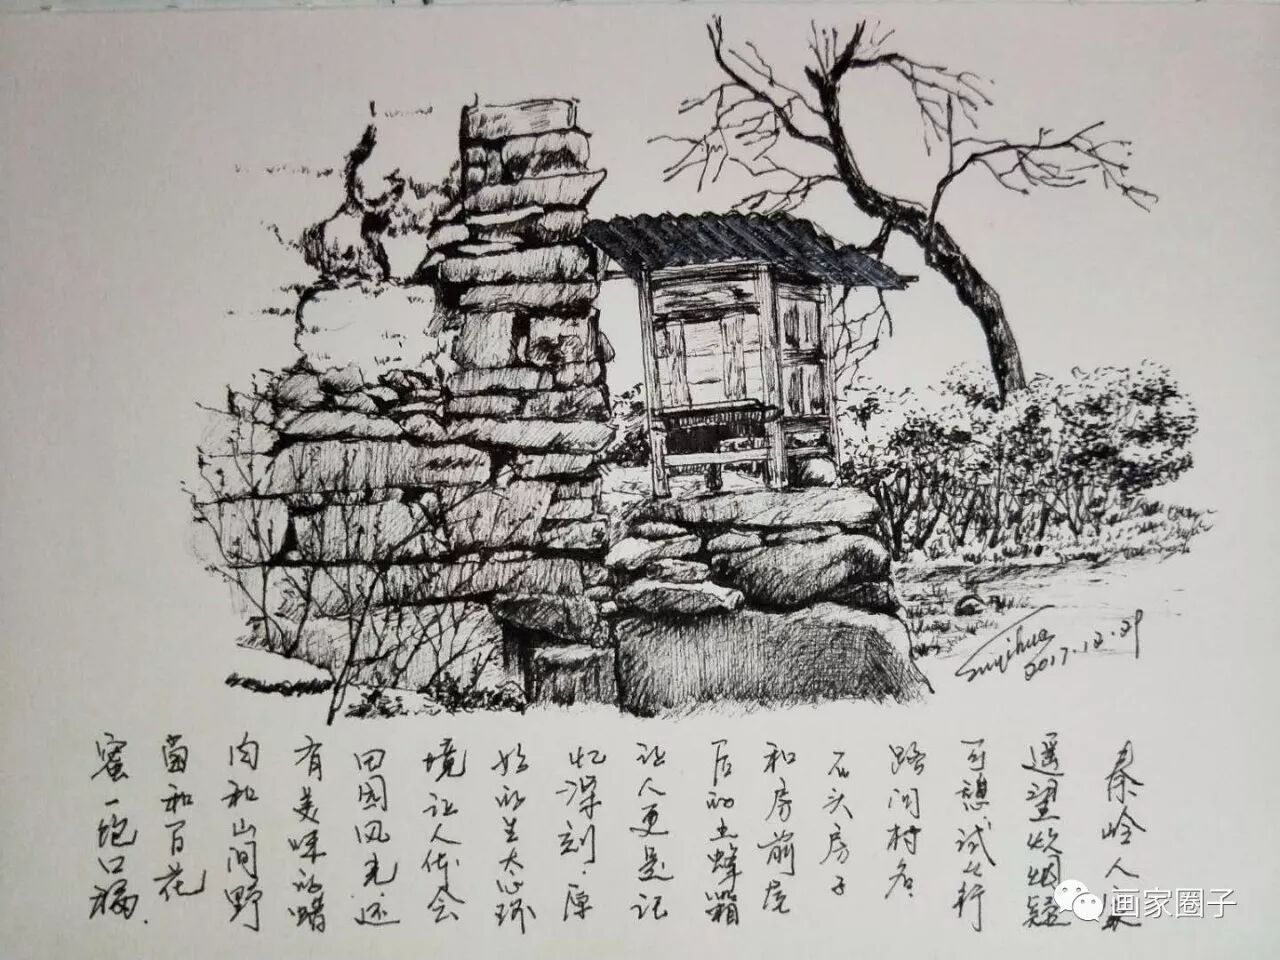 秦岭人家
遥望炊烟疑
可憩,试登行
路问村名
石头房子
和房前屋
后的土蜂箱
让人更是记
忆深刻.原
始的生太心环
境让人体会
田园风光还
有美味的腊
肉和山间野
菌和百花
蜜一饱口福.
2017.12.29
画家圈子